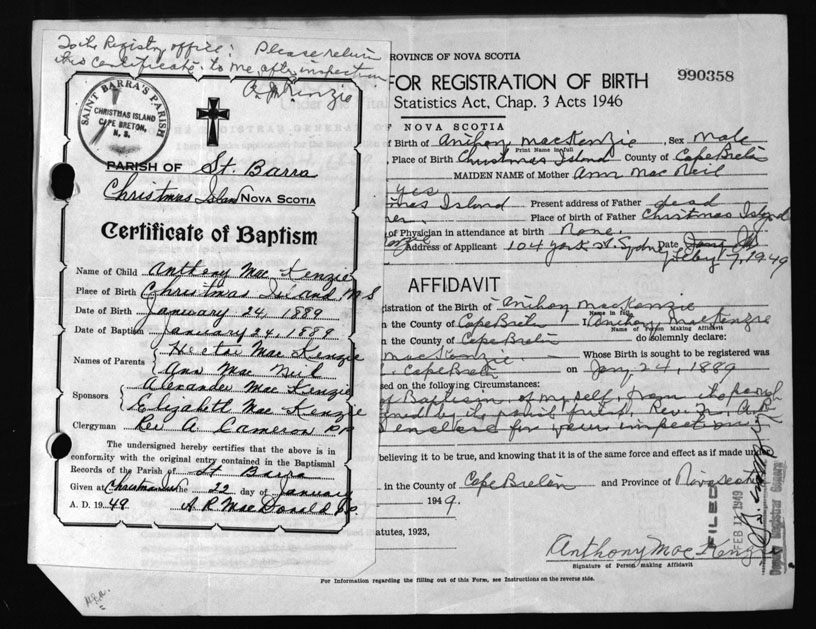 To the Registry office: Please return
this certificate to me after inspection
A. McKenzie
SAINT BARRA'S PARISH
CHRISTMAS ISLAND
CAPE BRETON,
N. S.
PARISH OF St. Barra
Christmas Island NOVA SCOTIA
Certificate of Baptism
Name of Child Anthony Mac Kenzie
Place of Birth Christmas Island N S
Date of Birth January 24, 1889
Date of Baptism January 24, 1889
Names of Parents Hector Mac Kenzie
Ann Mac Neil
Sponsors Alexander Mac Kenzie
Elizabeth Mac Kenzie
Clergyman Rev A. Cameron P.P.
The undersigned hereby certifies that the above is in
conformity with the original entry contained in the Baptismal
Records of the Parish of St Barra
Given at Christmas Isl the 22 day of January
A. D. 1949 A R MacDonald P.P.
PROVINCE OF NOVA SCOTIA
FOR REGISTRATION OF BIRTH 990358
Statistics Act, Chap. 3 Acts 1946
OF NOVA SCOTIA
of Birth of Anthony MacKenzie, Sex Male
Print Name in full
, Place of Birth Christmas Island County of Cape Breton
MAIDEN NAME of Mother Ann Mac Neil
yes
mas Island Present address of Father dead
er. Place of birth of Father Christmas Island
of Physician in attendance at birth None.
Address of Applicant 104 York St. Sydney Date
Feby 7, 1949
AFFIDAVIT
gistration of the Birth of Anthony MacKenzie
Name in full
n the County of Cape Breton I Anthony MacKenzie
Name of Person Making Affidavit
n the County of Cape Breton do solemnly declare:
MacKenzie Whose Birth is sought to be registered was
Cape Breton on Jany 24, 1889
sed on the following Circumstances:
of Baptism, of myself, from the parish
ned by the parish priest, Rev.
enclosed for your inspection
believing it to be true, and knowing that it is of the same force and effect as if made under
in the County of Cape Breton and Province of Nova Scotia
1949.
tatutes, 1923,
FILED
FEB 12 1949
Deputy Registrar General
Anthony Mac Kenzie
Signature of Person making Affidavit
For Information regarding the filling out of this Form, see Instructions on the reverse side.